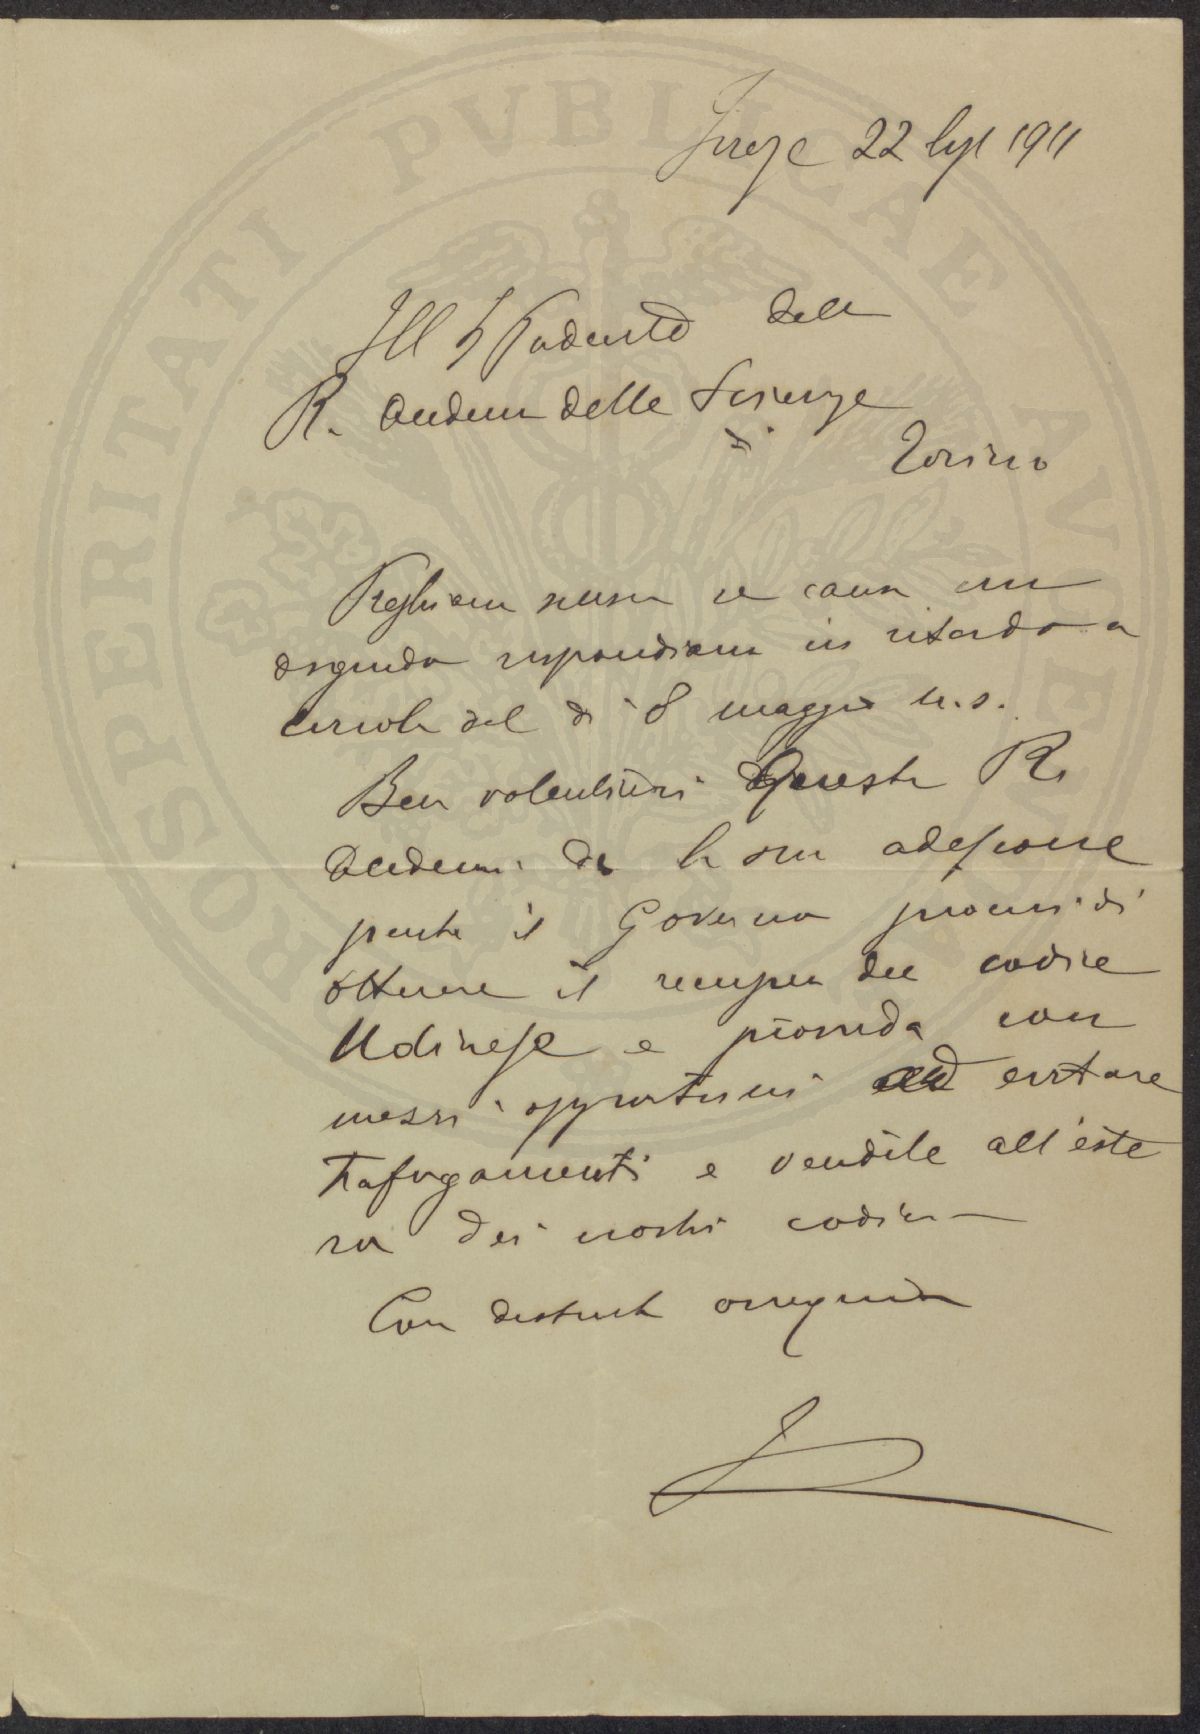 PROSPERITATI PVBLICAE AVGENDAE
Firenze 22 lugl 1911
Ill Sr Presidente della
R. Accademia delle Scienze
di Torino
Preghiamo scusa se causa un
disguido rispondiamo in ritardo a
circolare del dì 8 maggio u.s.
Ben volentieri questa R.
Accademia dà la sua adesione
perché il Governo procuri di
ottenere il recupero del codice
Udinese e provveda con
mezzi opportuni ad evitare
trafugamenti e vendite all'este
ro dei nostri codici
Con distinta osservanza